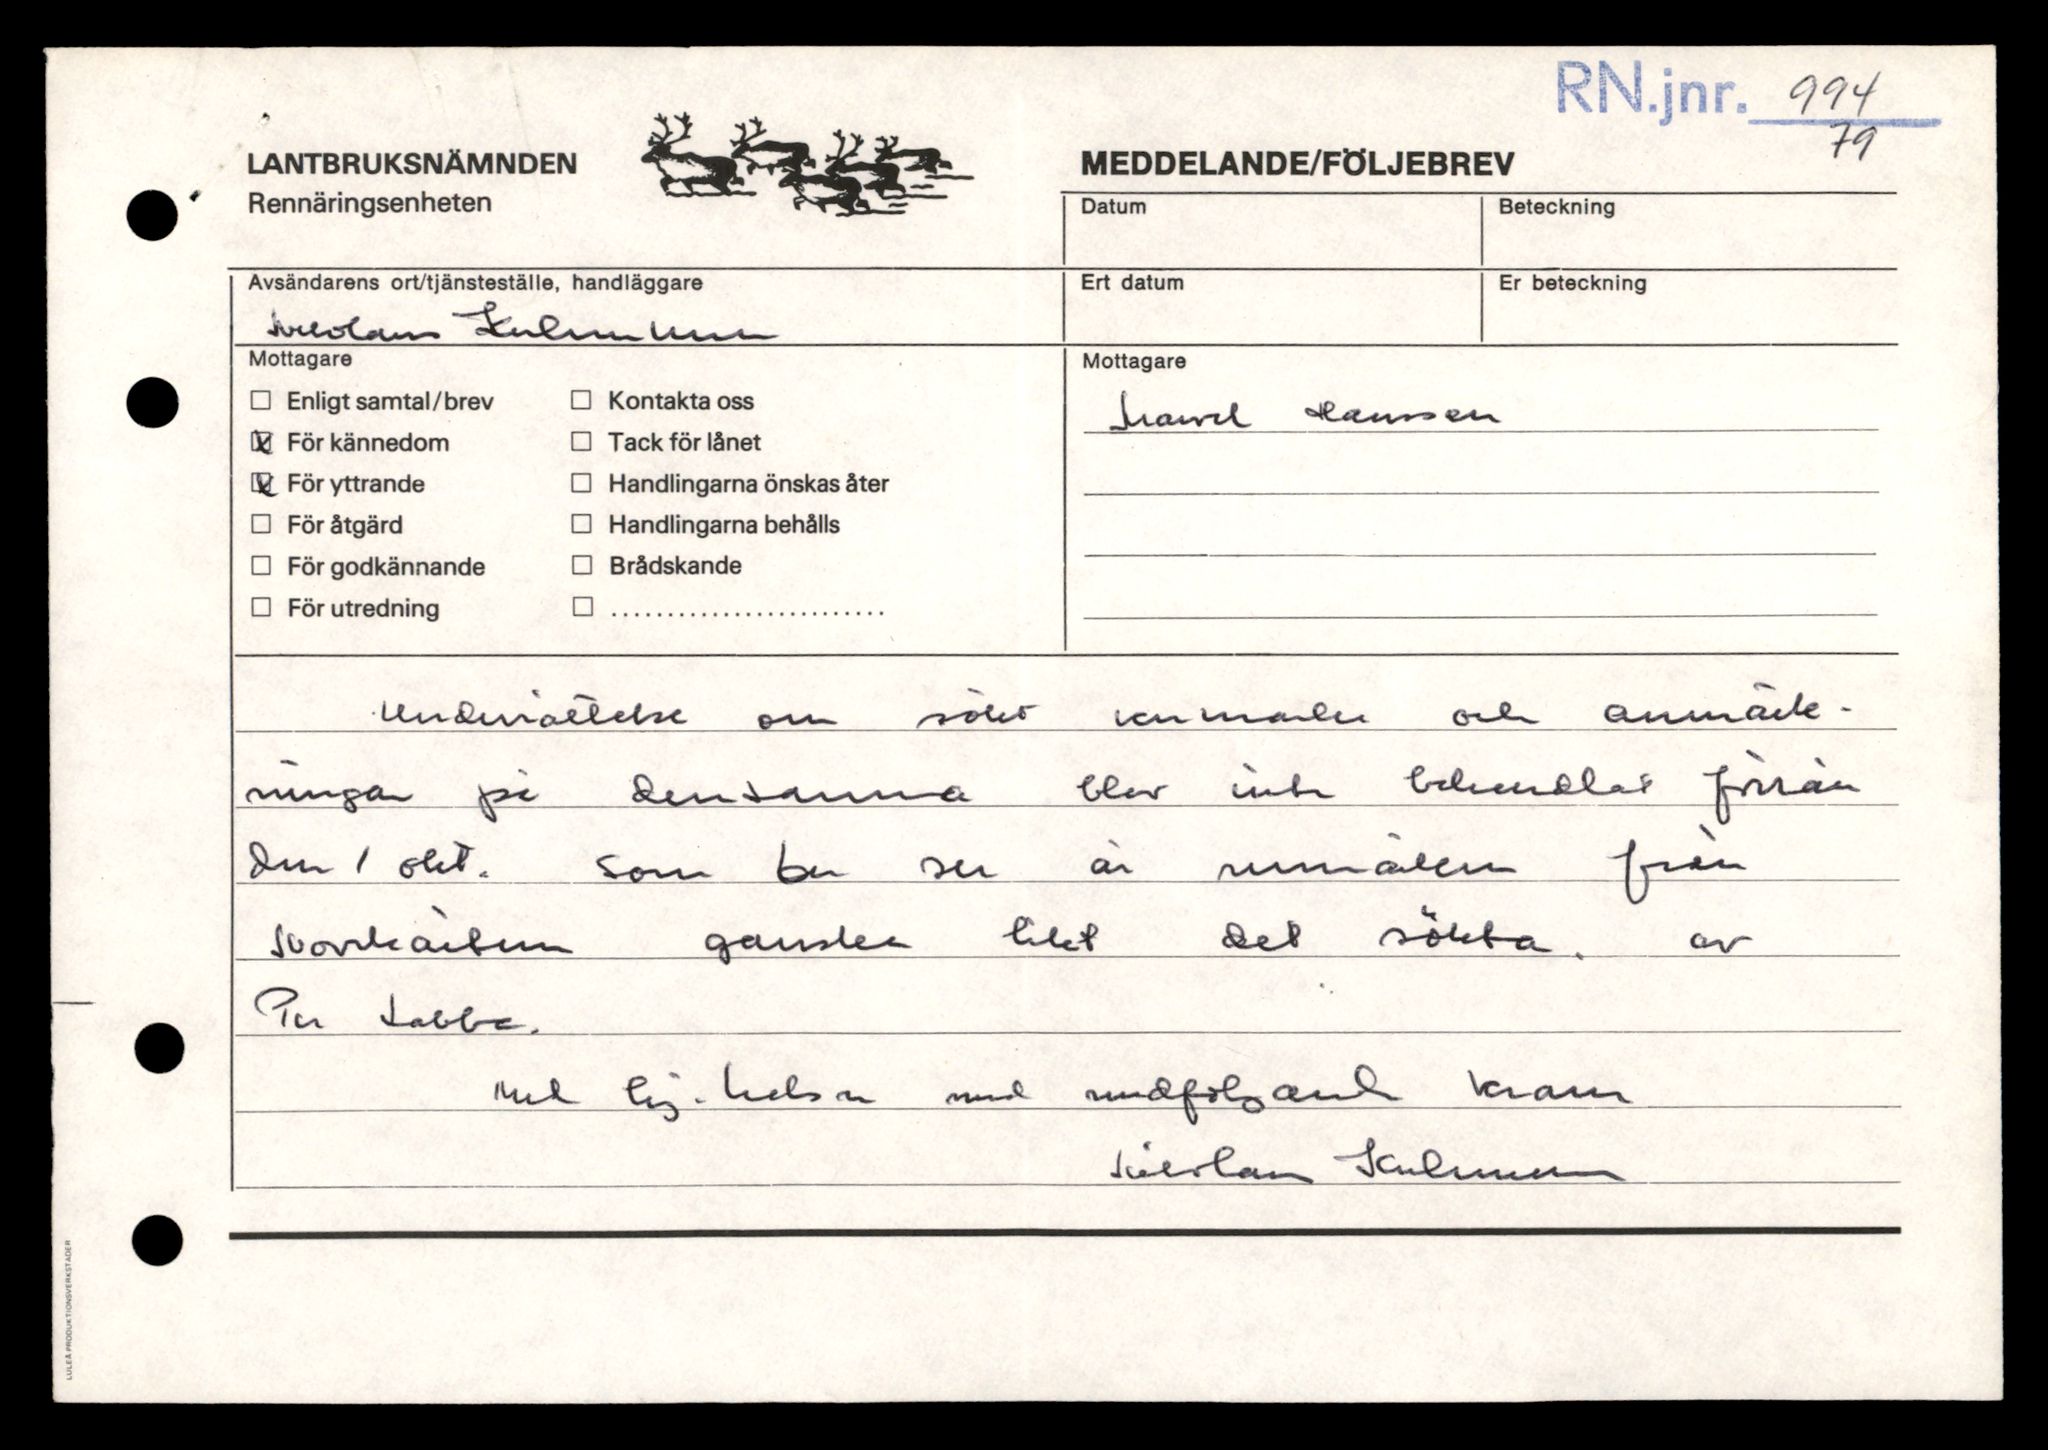 RN.jnr. 994
79
LANTBRUKSNÄMNDEN
Rennäringsenheten
MEDDELANDE/FÖLJEBREV
Datum
Beteckning
Avsändarens ort/tjänsteställe, handläggare
Ert datum
Er beteckning
Nikolaus
Mottagare
Mottagare
Enligt samtal/brev
Kontakta oss
Hanssen
För kännedom
Tack för lånet
För yttrande
Handlingarna önskas åter
För åtgärd
Handlingarna behålls
För godkännande
Brådskande
För utredning
Underrättelse om sökt renmärke och anmärk-
ningar på densamma blev inte behandlat förrän
den 1 okt. Som du ser är renmärken från
ganska likt det sökta. av
Per Labba.
Med hälsn med medföljande kram
LULEÅ PRODUKTIONSVERKSTÄDER